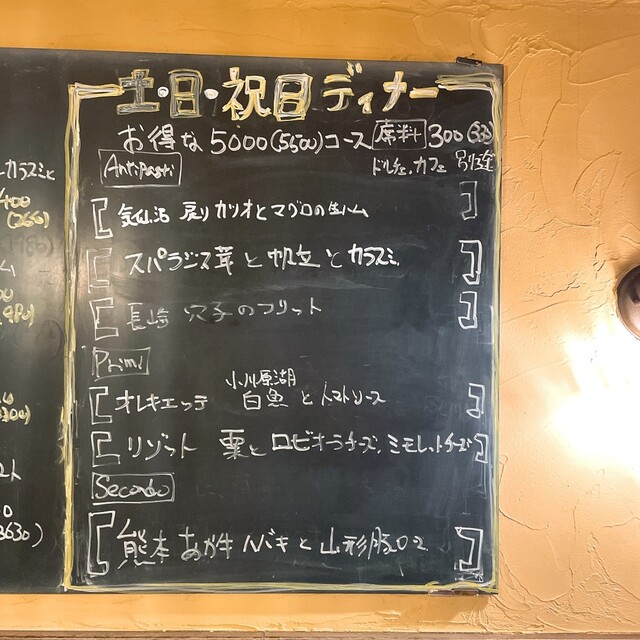 土・日・祝日 ディナー
お得な 5000(5500)コース 席料 300(330)
ドルチェ、カフェ 別途
Antipasti
気仙沼 戻りカツオとマグロの生ハム
スパラシス茸と帆立とカラスミ
長崎 穴子のフリット
Primi
小川原湖
オレキエッテ 白魚とトマトソース
リゾット 栗とロビオーラチーズ、ミモレットチーズ
Secondo
熊本 あか牛ハバキと山形豚ロース
カラスミと
400
(3630)